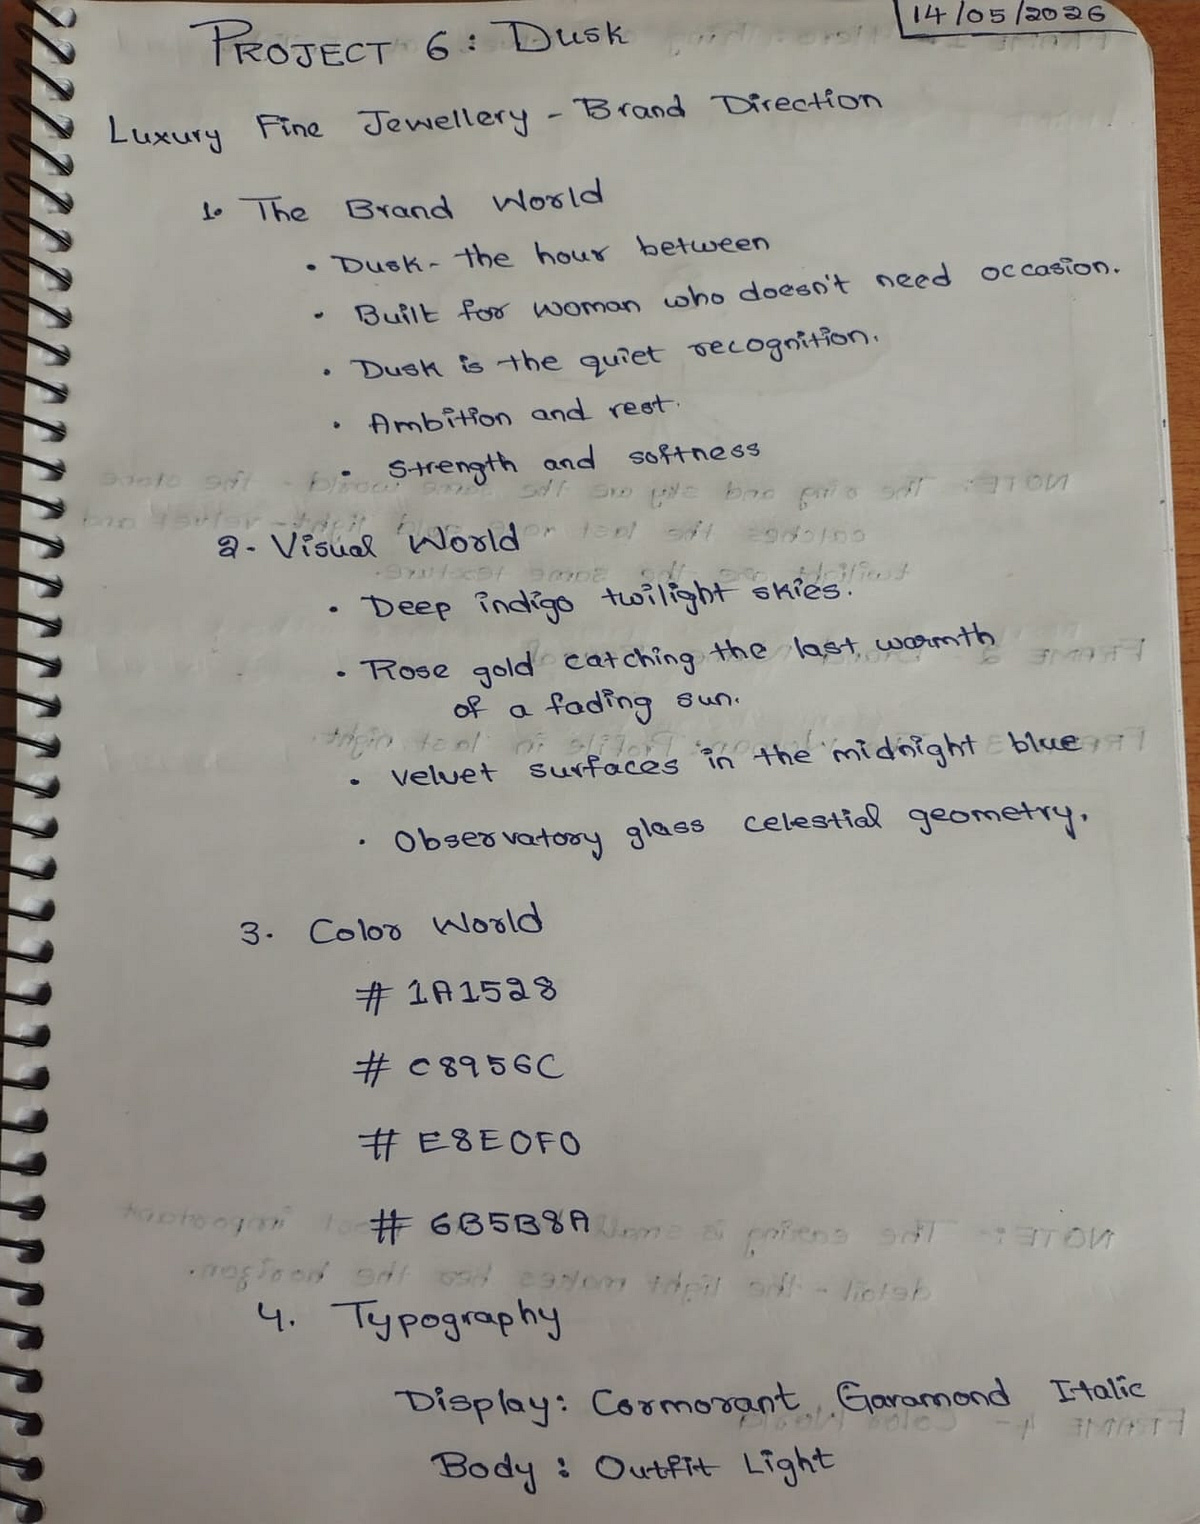 14/05/2026
PROJECT 6: Dusk
Luxury Fine Jewellery - Brand Direction
1. The Brand World
• Dusk - the hour between
• Built for woman who doesn't need occasion.
• Dusk is the quiet recognition.
• Ambition and rest.
• Strength and softness
2. Visual World
• Deep indigo twilight skies.
• Rose gold catching the last warmth
of a fading sun.
• Velvet surfaces in the midnight blue
• Observatory glass celestial geometry.
3. Color World
# 1A1528
# C8956C
# E8E0F0
# 6B5B8A
4. Typography
Display: Cormorant Garamond Italic
Body: Outfit Light